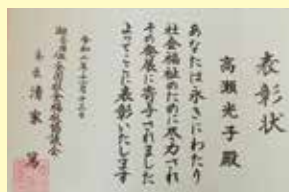 表彰状
高瀬光子殿
あなたは永きにわたり
社会福祉のために尽力され
その発展に寄与されました
よってここに表彰いたします
令和
会長 清家 篤